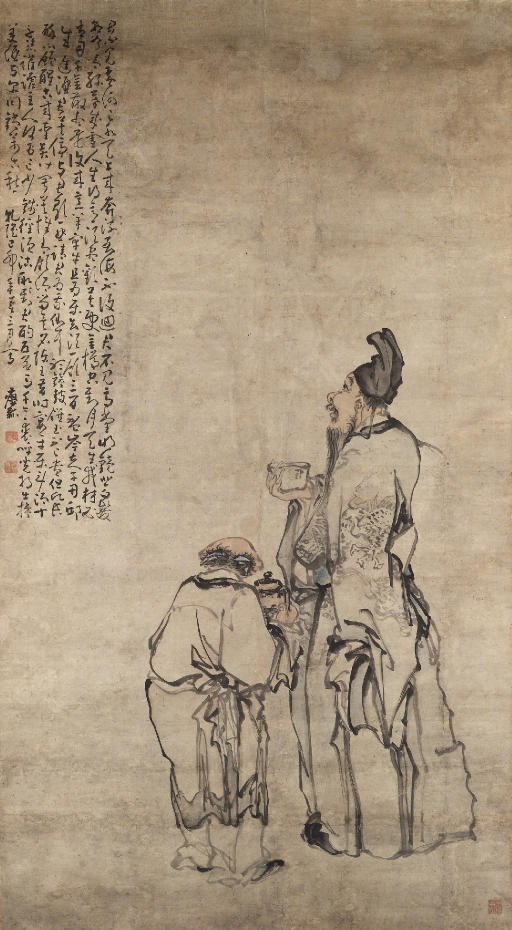 君不見黃河之水天上來奔流到海不復回君不見高堂明鏡悲白髮
朝如青絲暮成雪人生得意須盡歡莫使金樽空對月天生我材必
有用千金散盡還復來烹羊宰牛且為樂會須一飲三百杯岑夫子丹邱
生進酒君莫停與君歌一曲請君為我側耳聽鐘鼓饌玉不足貴但願長
醉不願醒古來聖賢皆寂寞惟有飲者留其名陳王昔時宴平樂斗酒十
千恣歡謔主人何為言少錢徑須沽取對君酌五花馬千金裘呼兒將出換
美酒與爾同銷萬古愁 乾隆己卯年春三月寫 癭瓢